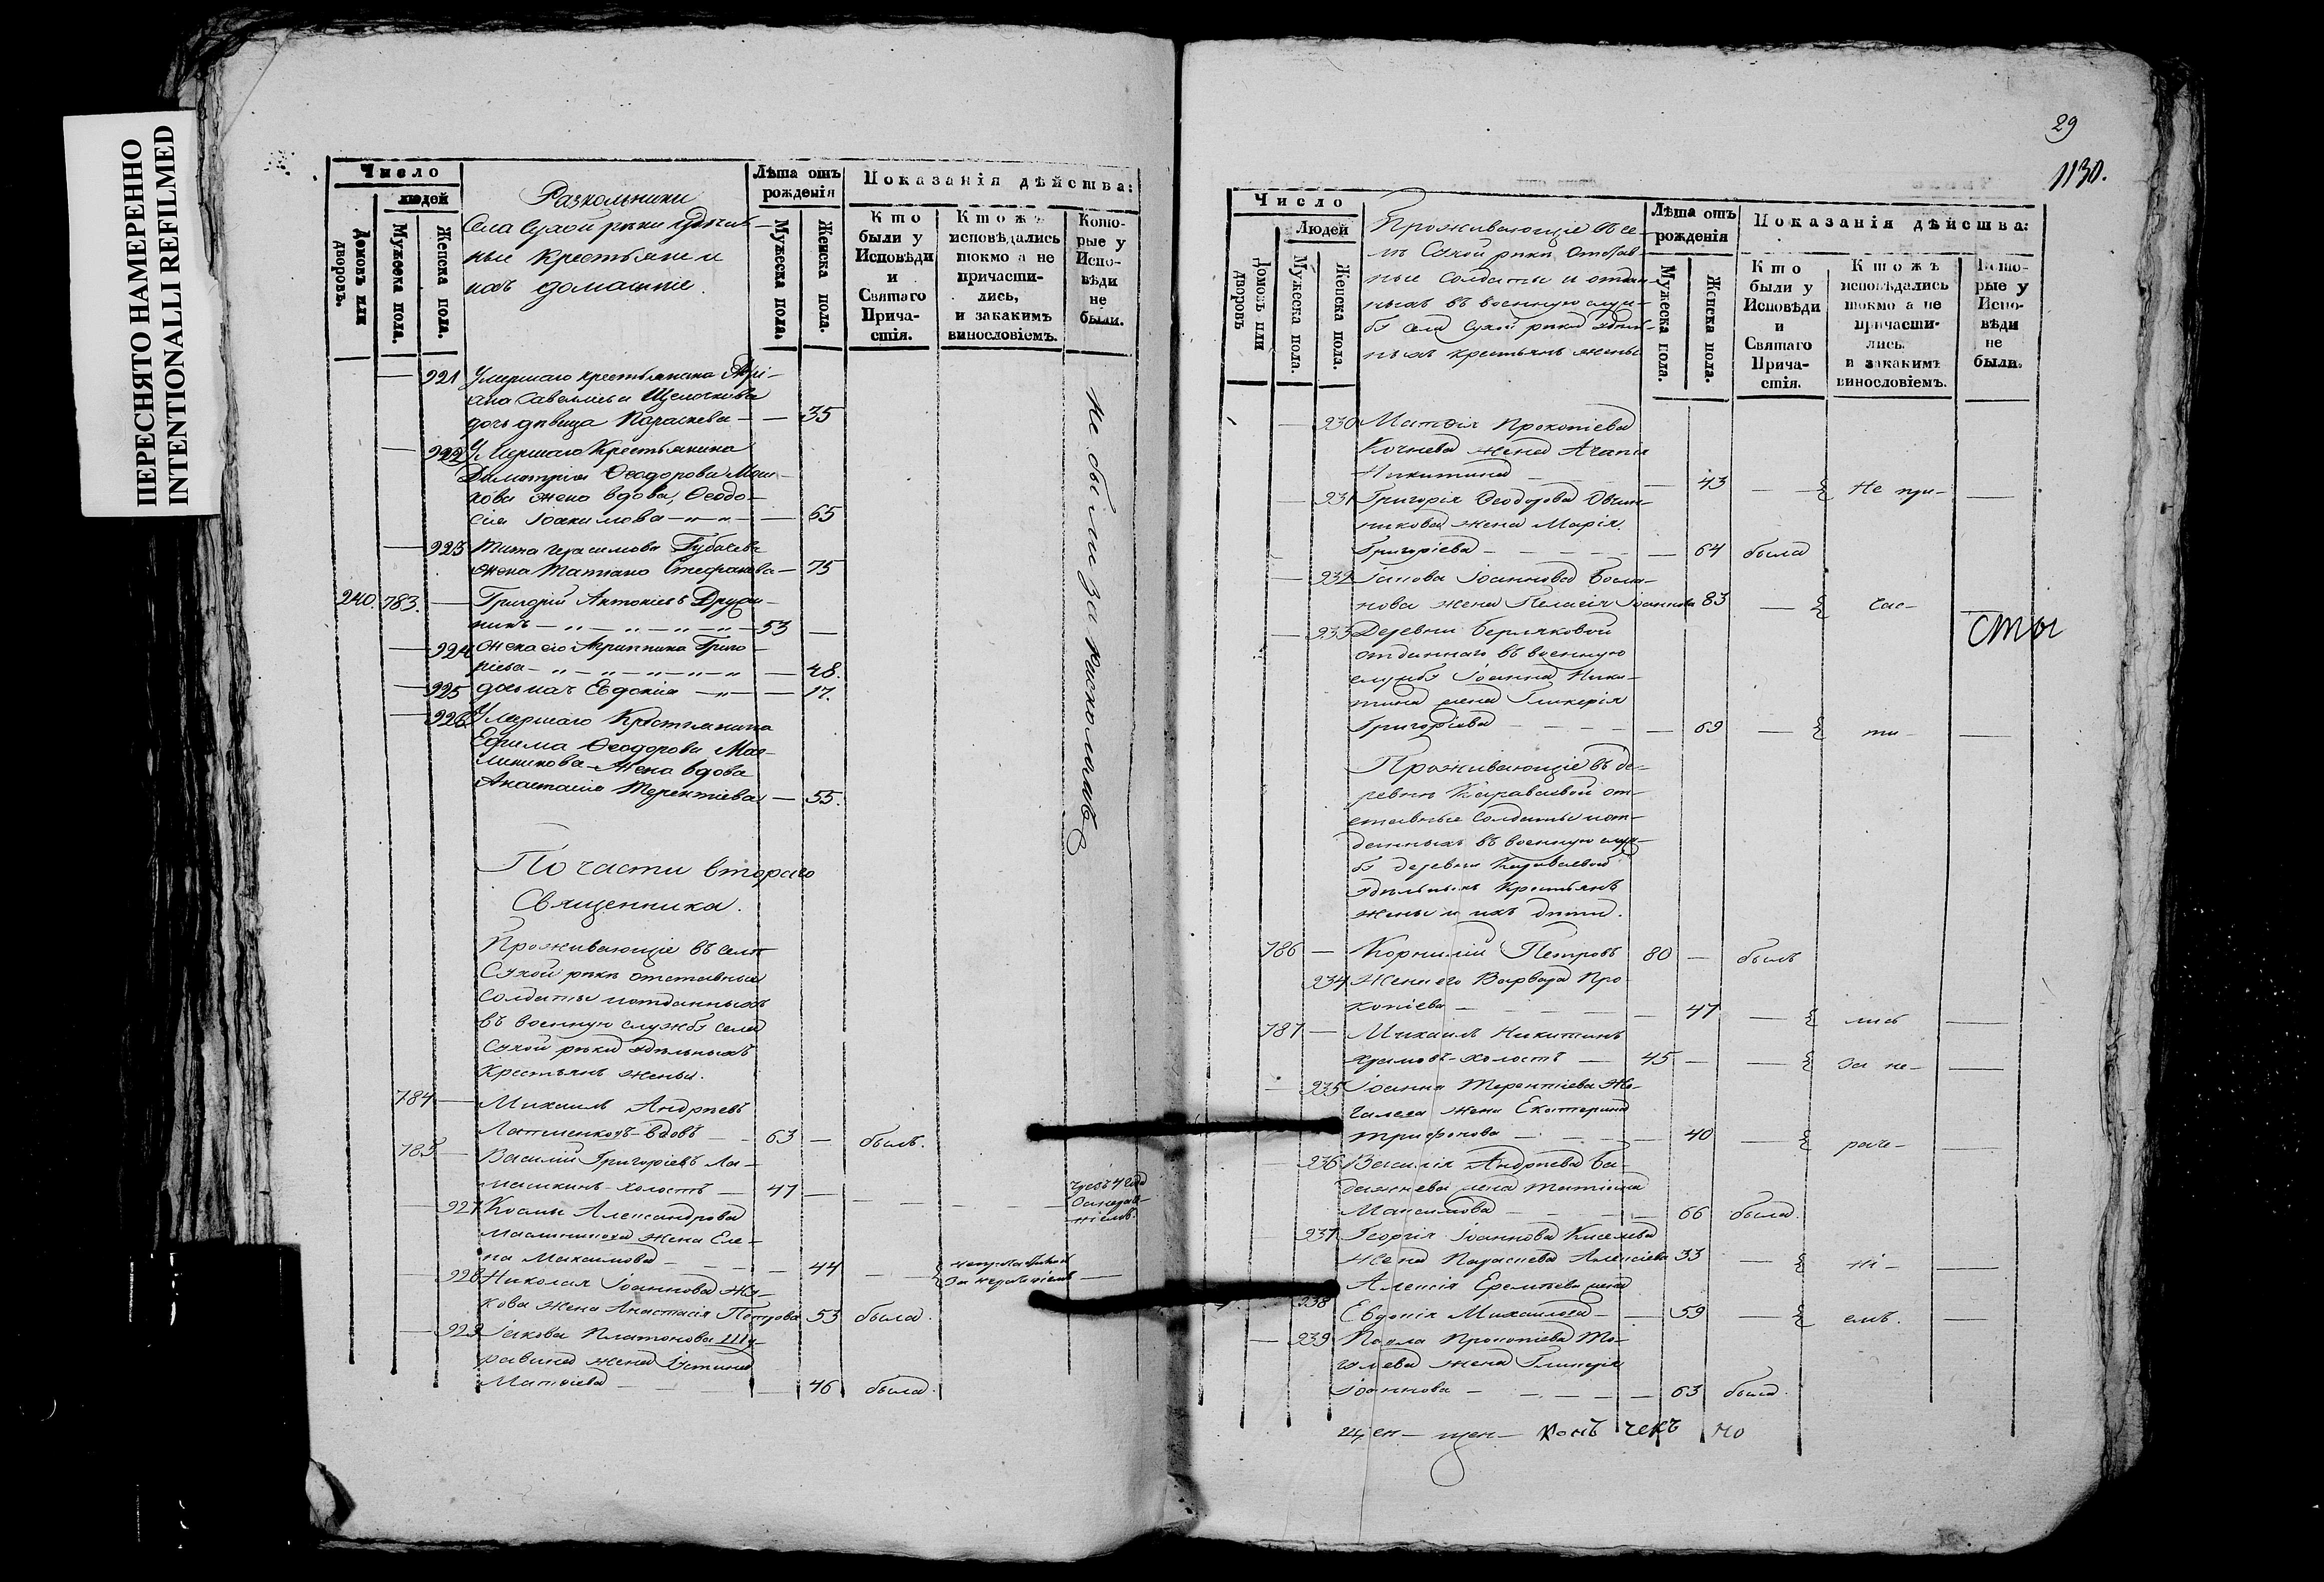 ПЕРЕСНЯТО НАМЕРЕННО
INTENTIONALLI REFILMED
Число
людей
Домовъ или дворовъ.
Мужеска пола.
Женска пола.
Разкольники
Села Сухой рѣки удѣль-
ные крестьяне и
ихъ домашніе.
Лѣта отъ рожденія
Мужеска пола.
Женска пола.
Показанія дѣйства:
Кто были у Исповѣди и Святаго Прича-стія.
Ктожъ исповѣдались токмо а не причасти-лись, и закакимъ винословіемъ.
Кото-рые у Испо-вѣди не были.
921 Умершаго крестьянина
Савельева Щелочкова
дочь дѣвица Параскева — — 35
922 Умершаго Крестьянина
Димитрія Ѳеодорова
жена вдова, Ѳеодо-
сія Іоакимова — — 65
923 Герасимова
жена Татіана Стефанова — 75
240. 783. — Григорій Антоніевъ
— 53 —
924 жена его Агриппина Григо-
ріева — 48.
925 дочь ихъ Евдокія — 17.
926 Умершаго Крестьянина
Ефима Ѳеодорова Мас-
ленникова Жена вдова
Анастасія Терентіева — 55.
не были за расколомъ
По части втораго
Священника.
Проживающіе въ селѣ
Сухой рѣкѣ отставные
солдаты и отданныхъ
въ военную службу села
Сухой рѣки удѣльныхъ
Крестьянъ жены.
784 — Михаилъ Андреевъ
вдовъ — 63 — былъ.
785 — Василій Григоріевъ Ла-
машкинъ холостъ — 47 —
927 Космы Александрова
жена Еле-
на Максимова — 44
928 Николая Іоаннова
кова жена Анастасія Петрова 53 была.
929 Іакова Платонова Шу-
равина жена Устинья
Матѳіева — 46 была.
29
1130.
Число
Людей
Домовъ или дворовъ
Мужеска пола.
Женска пола.
Проживающіе въ се-
лѣ Сухой рѣкѣ Отстав-
ные солдаты и отдан-
ныхъ въ военную служ-
бу села Сухой рѣки удѣль-
ныхъ крестьянъ жены
Лѣта отъ рожденія
Мужеска пола.
Женска пола.
Показанія дѣйства:
Кто были у Исповѣди и Святаго Прича-стія.
Ктожъ исповѣдались токмо а не причасти-лись. и закакимъ винословіемъ.
Кото-рые у Испо-вѣди не были.
930 Матѳія Прокопіева
Кочнева жена Агапія
Никитина — 43 — Не при- —
931 Григорія Ѳеодорова Овчин-
никова жена Марія
Григоріева — 64 была
932 Іакова Іоаннова
нова жена Пелагія Іоаннова 83 — час- —
933 Деревни Берляковой
отданнаго въ военную
службу Іоанна Ники-
тина жена Гликерія
Григоріева — 69 — ти- —
сты
Проживающіе въ де-
ревнѣ Караваевой от-
ставные Солдаты и от-
данныхъ въ военную служ-
бу деревни Караваевой
удѣльныхъ Крестьянъ
жены и ихъ дѣти.
786 — Корнилій Петровъ 80 — былъ
934 Жена его Варвара Про-
копіева — 47 — лись —
787 — Михаилъ Никитинъ
холостъ — 45 — — за не- —
935 Іоанна Терентіева
жена Екатерина
Трифонова — 40 — раче- —
936 Василія Андреева
жена Татіана
Максимова — 66 была.
937 Георгія Іоаннова Киселева
Жена Параскева Алексіева 33 — ні- —
938 Алексія Еремѣева жена
Евдокія Михаилова — 59 — емъ. —
939 Павла Прокопіева
жена Гликерія
Іоаннова — 63 была.